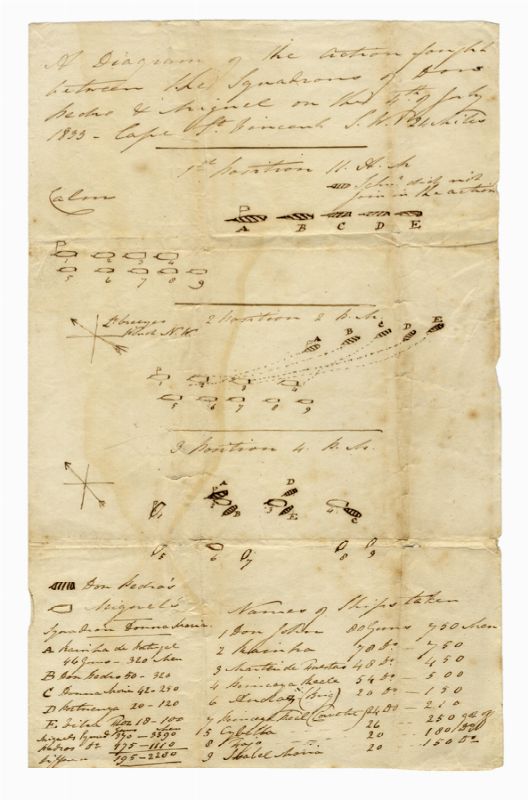 A Diagram of the action fought
between the Squadrons of Don
Pedro & Miguel on the 4th of July
1833 - Cape St Vincent S.W.
1st Position 11. A.M
did not
join in the action
Calm
A B C D E
1 2 3 4
5 6 7 8 9
2 Position 2 P.M.
Lt breezes
A B C D E
1 2 3 4
5 6 7 8 9
3 Position 4. P.M.
A D
1 2 B 3 E 4 C
5 6 7 8 9
Don Pedro's
Miguel's
Names of Ships taken
Squadron Donna Maria
1 Don John 80 Guns 750 Men
A Rainha de Portugal
46 Guns - 320 Men
2 Rainha 78 Do - 750
B Don Pedro 50 - 320
3 48 Do - 450
C Donna Maria 42 - 250
4 54 Do - 500
D Portuenza 20 - 120
6 20 Do - 150
E 18 - 100
7 24 Do - 210
Miguels Squad 370 - 3390
5 Cybelle 26 - 250
Pedros Do 175 - 1110
8 20 180 Do
195 - 2280
9 Isabel Maria 20 150 Do